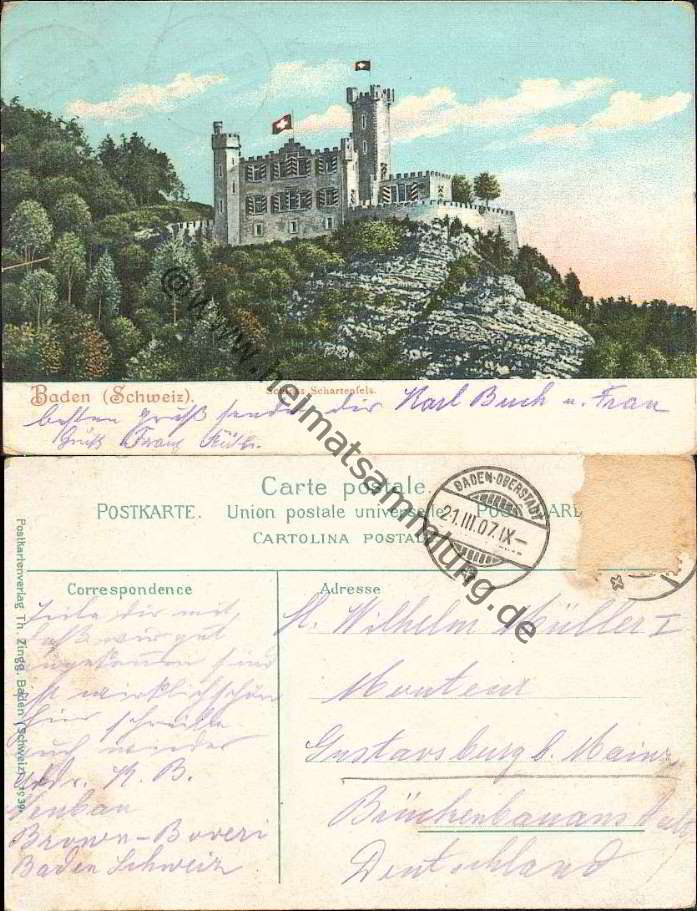 Baden (Schweiz). Schloss Schartenfels.
besten Gruß sendet der Karl Buch u. Frau
Gruß Franz
©www.heimatsammlung.de
Carte postale.
POSTKARTE. Union postale universelle. POSTCARD
CARTOLINA POSTALE
BADEN-OBERSTADT
21.III.07.IX-
Postkartenverlag Th. Zingg, Baden (Schweiz). 1939
Correspondence
Teile dir mit
daß wir gut
angekommen sind
ist wirklich schön
hier schreibe
auch wieder
Adr. K. B.
Neubau
Brown-Boveri
Baden Schweiz
Adresse
H. Wilhelm Müller I
Monteur
Gustavsburg b. Mainz
Brückenbauanstalt
Deutschland